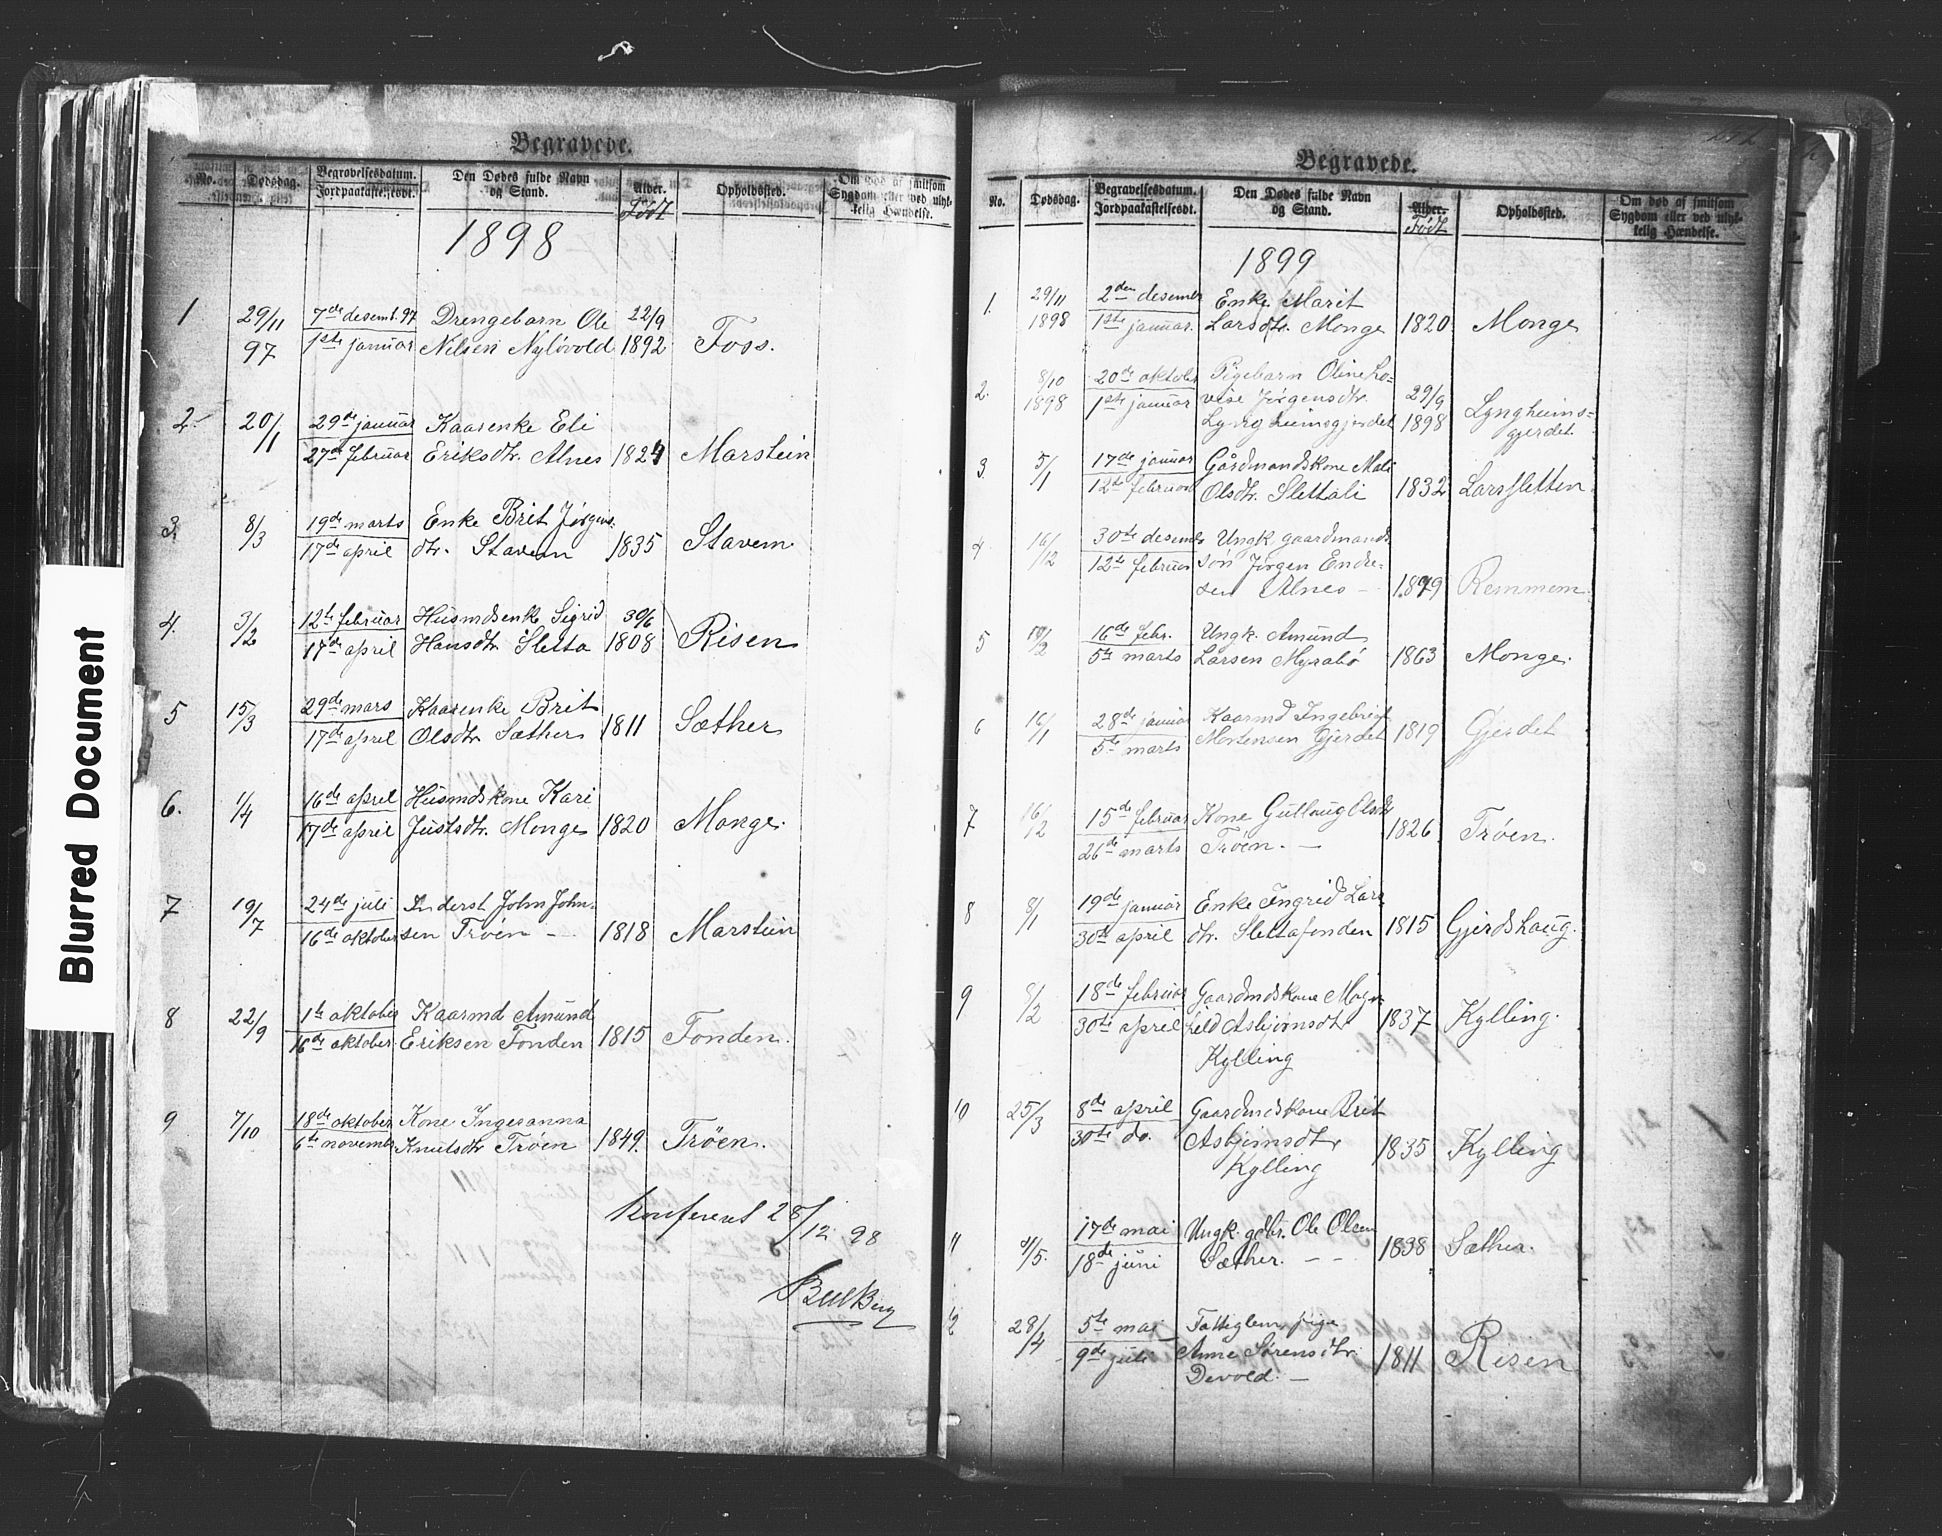 Blurred Document
Begravede.
No.
Dødsdag.
Begravelsesdatum.
Jordpaakastelsesdt.
Den Dødes fulde Navn
og Stand.
Alder.
Født
Opholdssted.
Om død af smitsom
Sygdom eller ved ulyk-
kelig Hændelse.
1898
1 29/11 7de desemb. 97 Drengebarn Ole 22/9
97 1ste januar Nilsen Nylövold 1892 Foss.
2 20/1 29de januar Kaarenke Eli
27de februar Eriksdtr. Alnes 1824 Marstein
3 8/3 19de marts Enke Brit Jörgens-
17de april dtr. Stavem 1835 Stavem
4. 3/2 12te februar Husmdsenke Sigrid 30/6
17de april Hansdtr Sletta 1808 Risen
5 15/3 29de mars Kaarenke Brit
17de april Olsdtr Sæther 1811 Sæther
6. 1/4 16de april Husmdskone Kari
17de april Justsdtr. Monge 1820 Monge.
7 19/7 24de juli Inderst John John-
16de oktober sen Tröen - 1818 Marstein
8 22/9 1ste oktober Kaarmd Amund
16de oktober Eriksen Fonden 1815 Fonden.
9 7/10 18de oktober Kone Ingeranna
6te novembr. Knutsdtr Tröen 1849. Tröen.
Konferert 28/12 98
Begravede.
No.
Dødsdag.
Begravelsesdatum.
Jordpaakastelsesdt.
Den Dødes fulde Navn
og Stand.
Alder.
Født
Opholdssted.
Om død af smitsom
Sygdom eller ved ulyk-
kelig Hændelse.
1899
1. 29/11 2den desembr Enke Marit
1898 1ste januar. Larsdtr. Monge 1820 Monge
2. 8/10 20de oktobr Pigebarn Oline Lo-
1898 1ste januar vise Jörgensdtr. 29/9
Lyngheimsgjerdet 1898 Lyngheims-
gjerdet.
3 5/1 17de januar Gårdmandskone Mali
12te februar Olsdtr. Slettali 1832 Larssletten
4 16/12 30te desembr Ungk. gaardmands-
12te februar sön Jörgen Endre-
sen Alnes - 1879 Remmem
5 16de febr. Ungk. Amund
5te marts Larsen Myrabö 1863 Monge.
6 16/1 28de januar Kaarmd Ingebrigt
5te marts Mortensen Gjerdet 1819 Gjerdet
7 16/2 15de februar Kone Gullaug Olsdtr
26de marts Tröen. - 1826 Tröen.
8 8/1 19de januar Enke Ingrid Lars-
30te april dtr. Slettafonden 1815 Gjerdshaug.
9 8/2 18de februar Gaardmdskone Magn-
30te april hild Asbjörnsdtr 1837 Kylling.
Kylling
10 25/3 8de april Gaardmdskone Brit
30te do. Asbjörnsdtr 1835 Kylling
Kylling
11 17de mai Ungk. gdbr. Ole Olsen
18de juni Sæther. - - 1838 Sæther.
12 28/4 5te mai Fattiglem, pige
9de juli Anne Sörensdtr. 1811 Risen
Devold. -